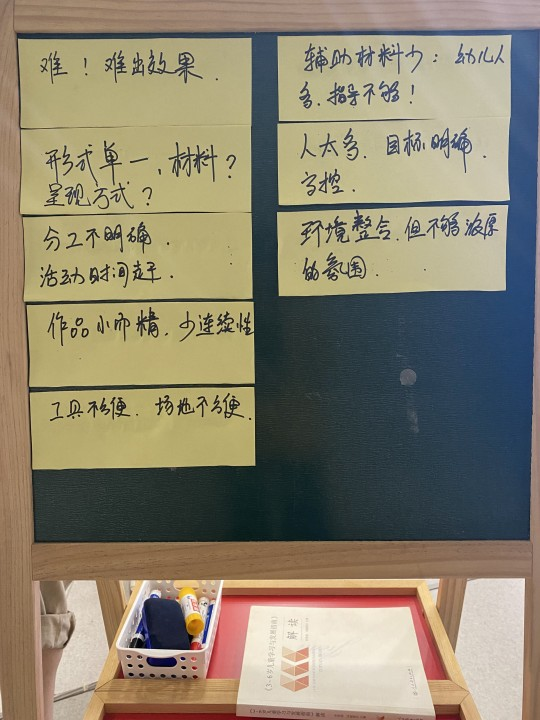 难！难出效果．
形式单一、材料？
呈现方式？
分工不明确．
活动时间
作品小而精，少连续性
工具不方便．场地不方便．
辅助材料少：幼儿人
多，指导不够！
人太多．目标明确．
环境整合，但不够浓厚
的氛围．
《3-6岁儿童学习与发展指南》
解读